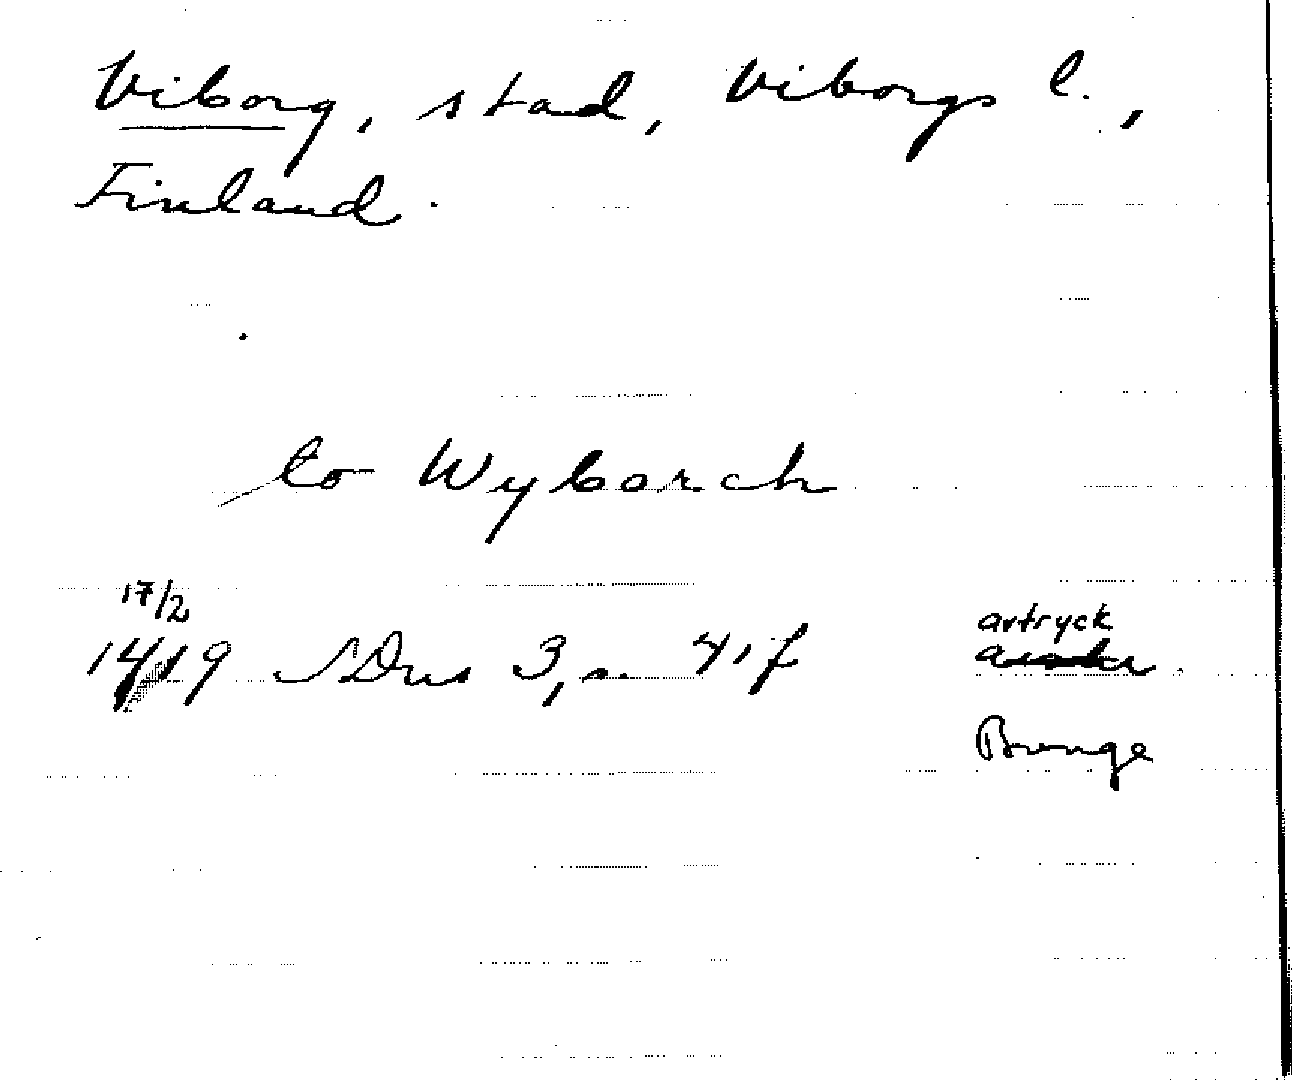 Viborg, stad, Viborgs l.,
Finland.
to Wyborch
17/2
1419 SDns 3, s. 41f
avtryck
Bunge